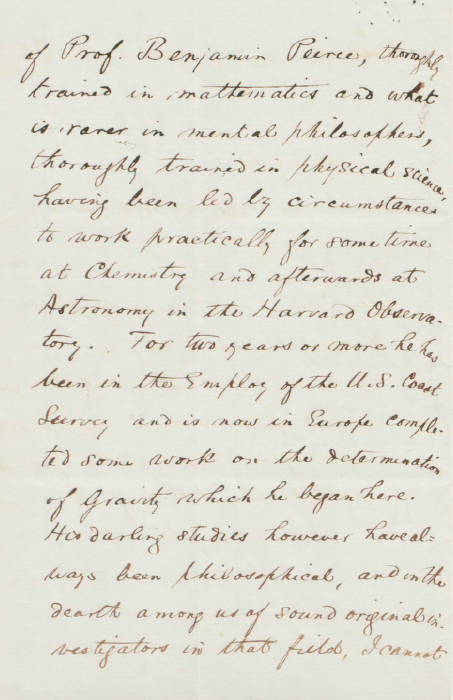 of Prof. Benjamin Peirce, thoroughly
trained in mathematics and what
is rarer in mental philosophers,
thoroughly trained in physical science,
having been led by circumstances
to work practically for some time
at Chemistry and afterwards at
Astronomy in the Harvard Observa-
tory. For two years or more he has
been in the Employ of the U.S. Coast
Survey and is now in Europe comple-
ted some work on the determination
of Gravity which he began here.
His darling studies however have al=
ways been philosophical, and in the
dearth among us of sound original in-
vestigators in that field, I cannot